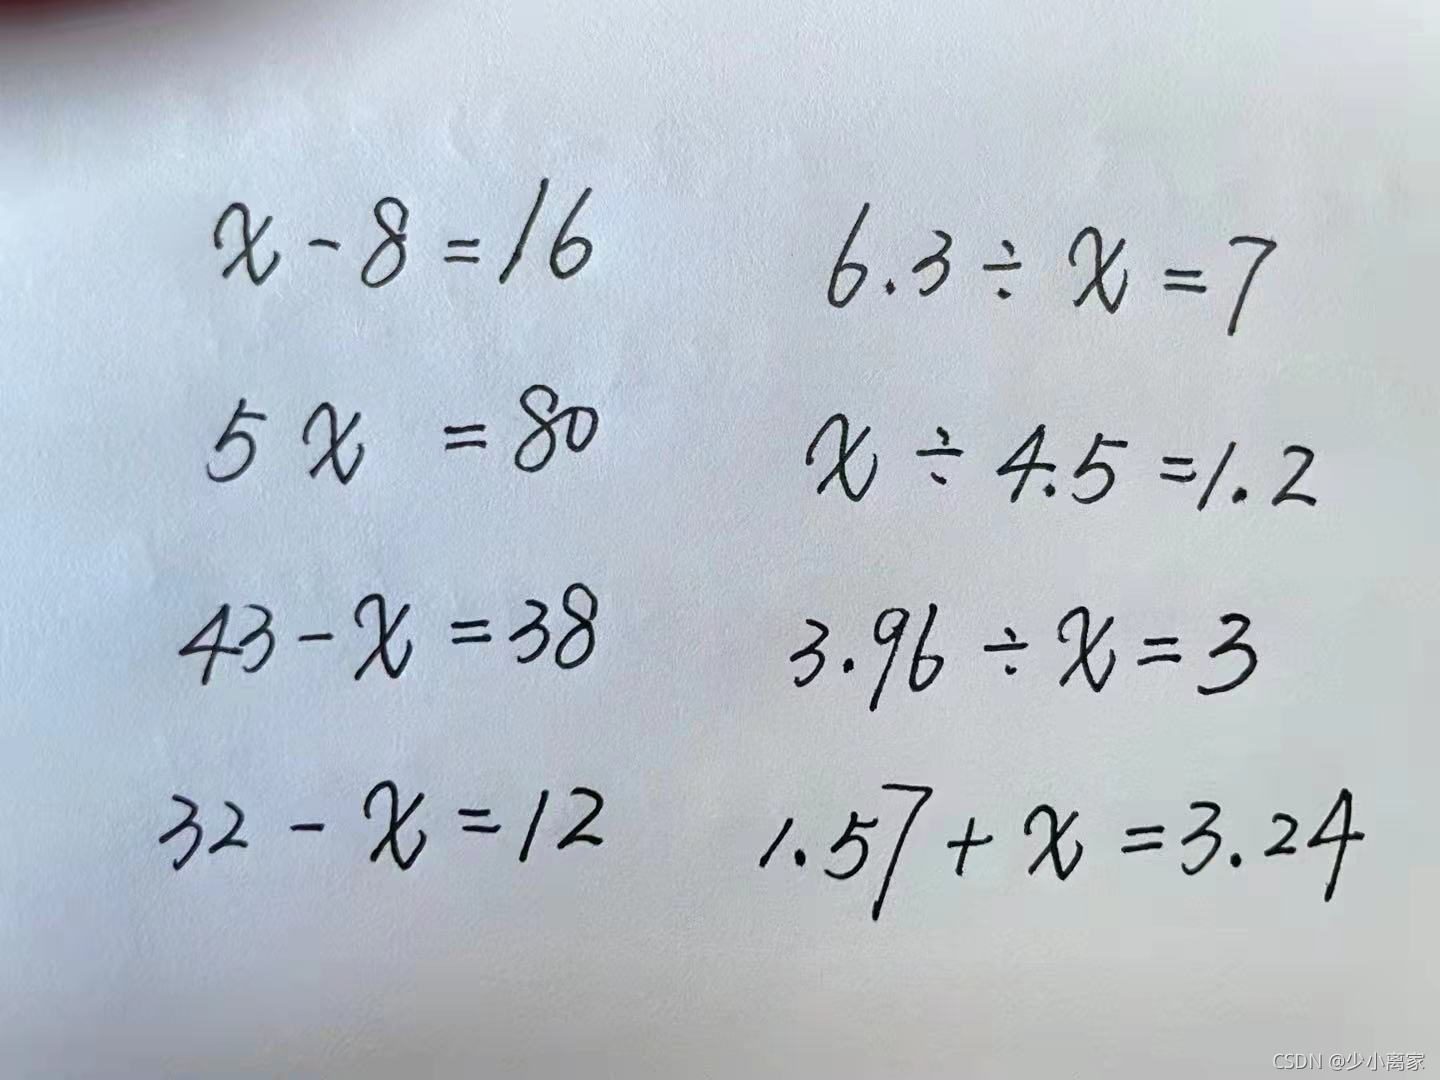 x - 8 = 16
6.3 ÷ x = 7
5x = 80
x ÷ 4.5 = 1.2
43 - x = 38
3.96 ÷ x = 3
32 - x = 12
1.57 + x = 3.24
CSDN @少小离家